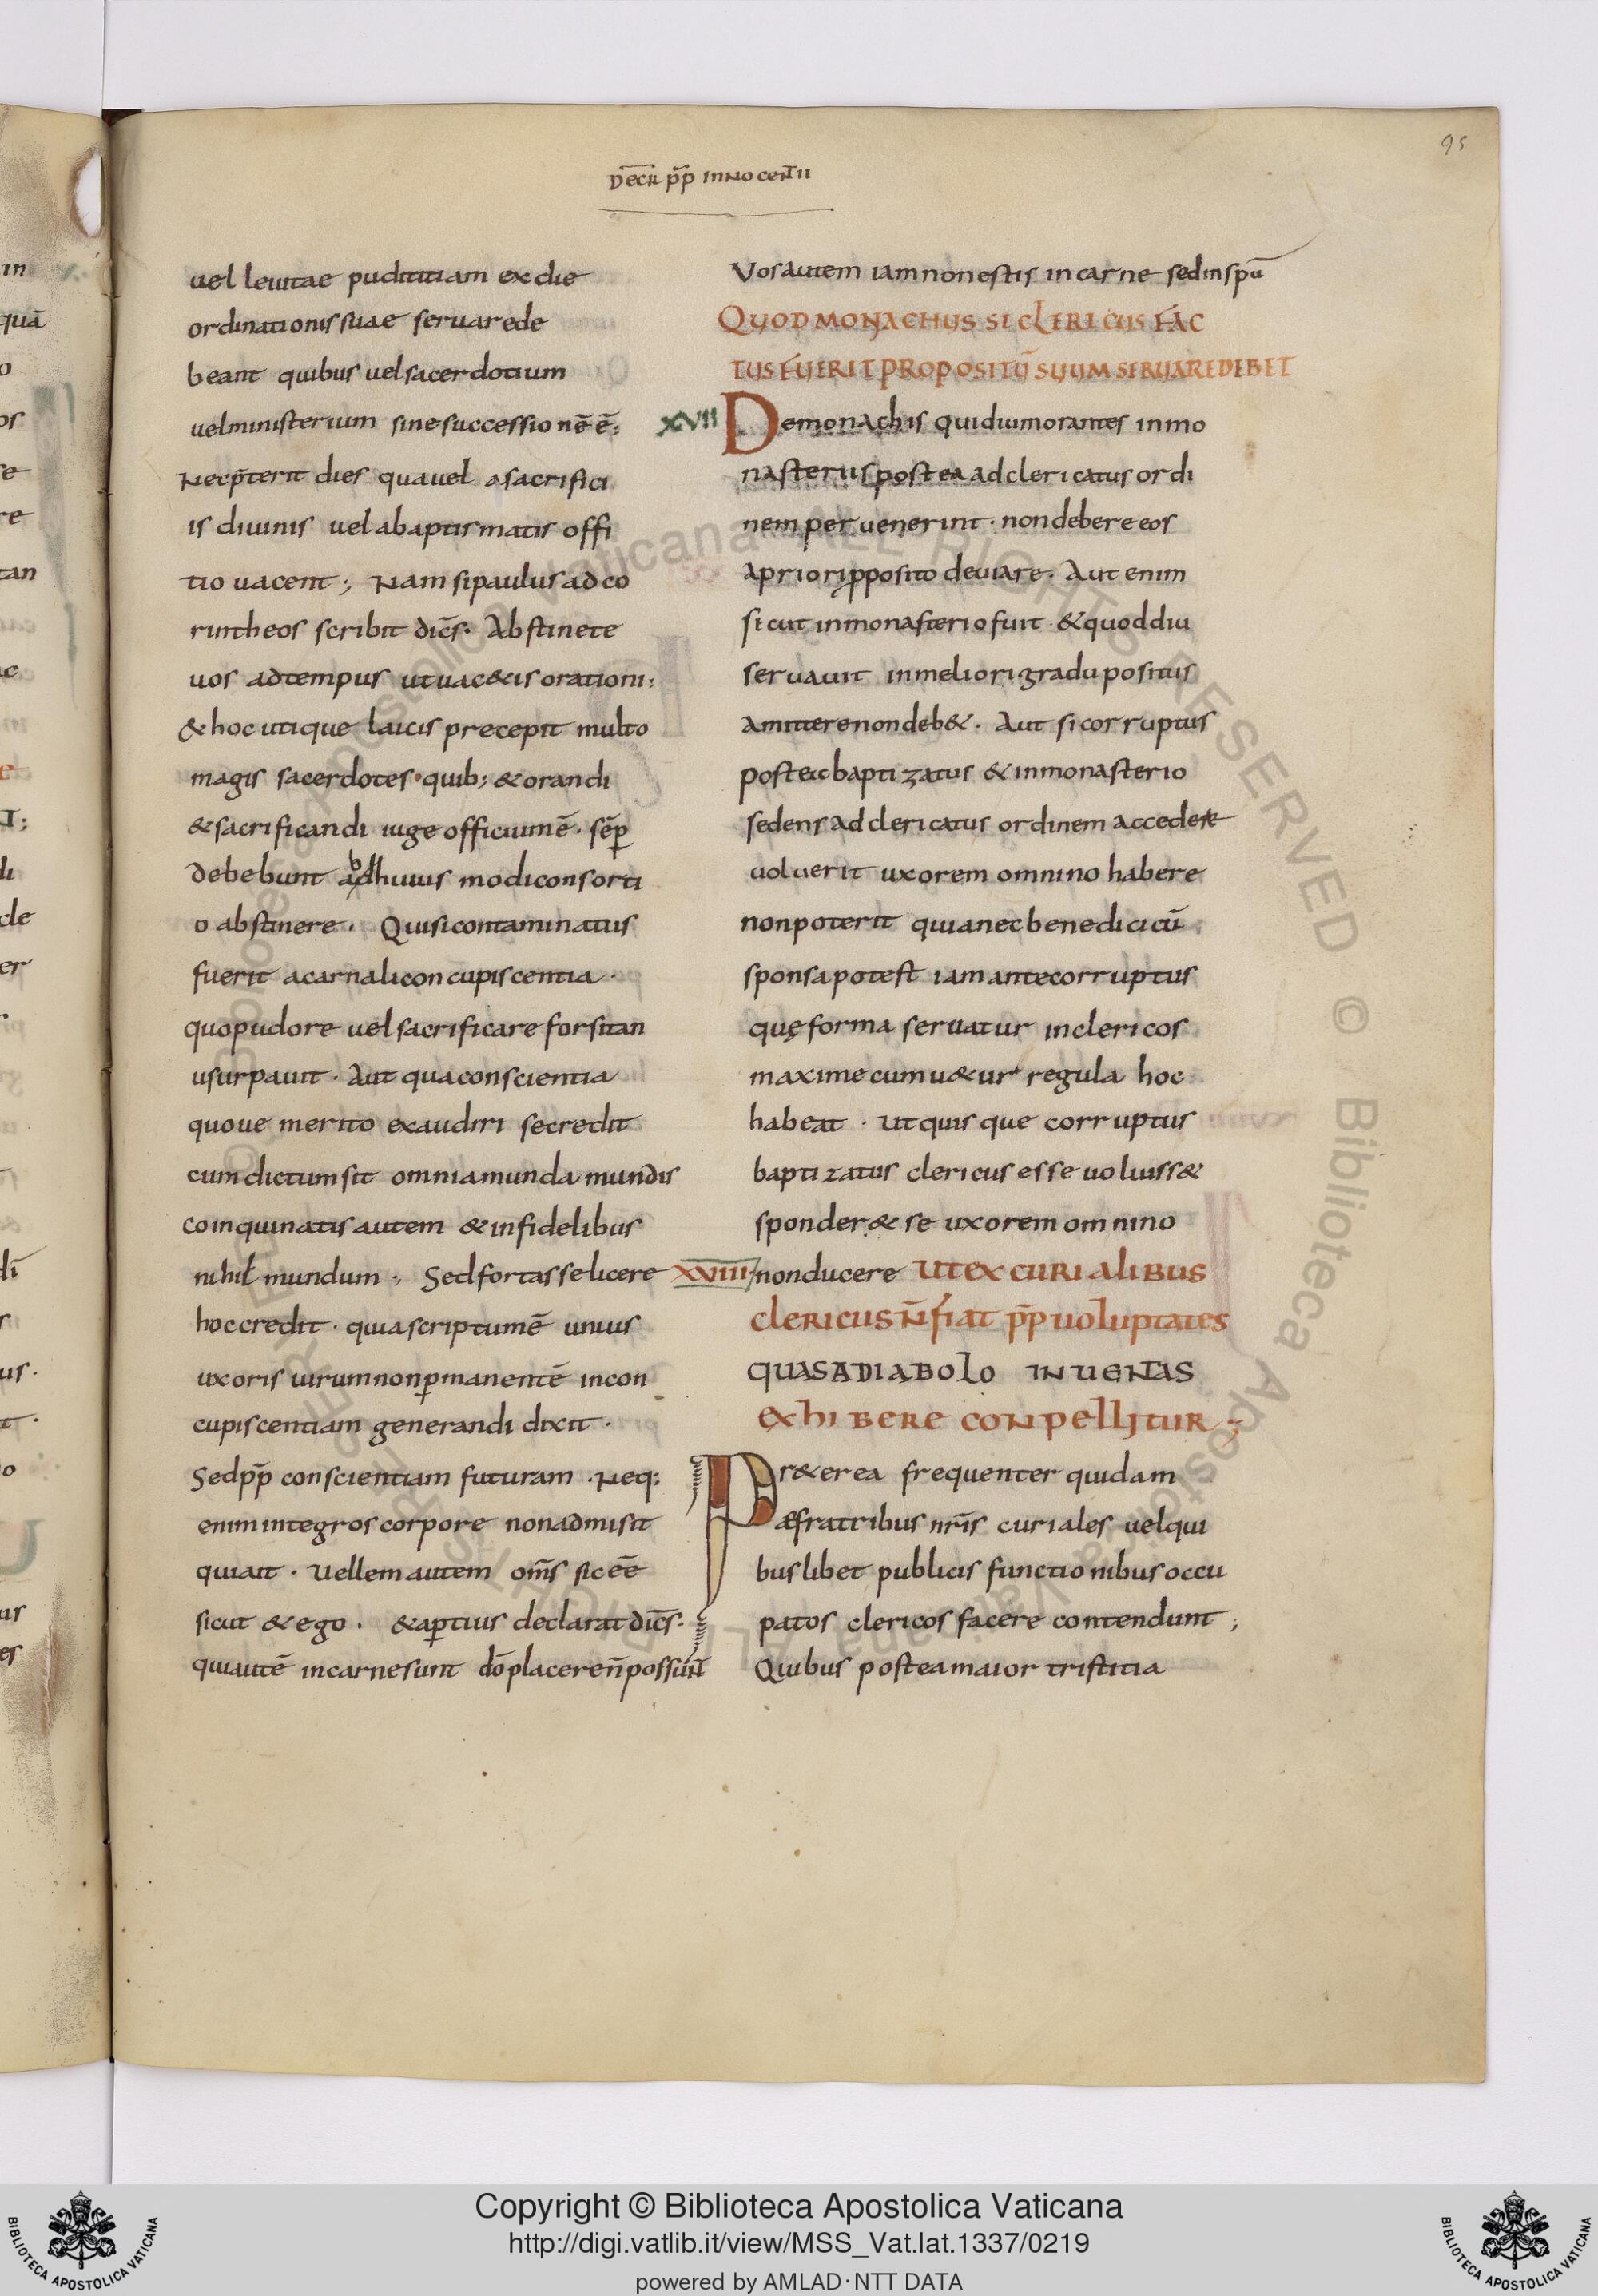 95
DECR̄ pp̄ INNOCENT̄II
uel leuitae pudititiam ex die
ordinationis suae seruare de
beant quibus uel sacerdotium
uel ministerium sine successionē ē;
Nec p̄terit dies qua uel a sacrifici
is diuinis uel a baptismatis offi
tio uacent; Nam si paulus ad co
rintheos scribit dic̄s. Abstinete
uos ad tempus ut uac&is orationi:
& hoc utique laicis precepit multo
magis sacerdotes. quib; & orandi
& sacrificandi iuge officium ē. sēp
debebunt ab huius modi consorti
o abstinere. Qui si contaminatus
fuerit a carnali concupiscentia.
quo pudore uel sacrificare forsitan
usurpauit. Aut qua conscientia
quo ue merito exaudiri se credit
cum dictum sit omnia munda mundis
coinquinatis autem & infidelibus
nihil mundum; Sed fortasse licere
hoc credit. quia scriptum ē unius
uxoris uirum non pmanentē in con
cupiscentiam generandi dixit.
Sed pp̄ conscientiam futuram. Neq;
enim integros corpore non admisit
qui ait. Uellem autem om̄s sic eē
sicut & ego. & aptius declarat dic̄s.
qui autē in carne sunt dō placere n̄ possuNT
Vos autem iam non estis in carne sed in spū
QUOD MONACHUS SI CLERICUS FAC
TUS FUERIT PROPOSITŪ SUUM SERUARE DEBET
XVII De monachis qui diu morantes in mo
nasteriis postea ad clericatus ordi
nem peruenerint. non debere eos
a priori pposito deuiare. Aut enim
sicut in monasterio fuit & quod diu
seruauit in meliori gradu positus
amittere non deb&. Aut si corruptus
postea baptizatus & in monasterio
sedens ad clericatus ordinem accedere
uoluerit uxorem omnino habere
non poterit quia nec benedici cū
sponsa potest iam ante corruptus
quę forma seruatur in clericos
maxime cum u&ur regula hoc
habeat. Ut quisque corruptus
baptizatus clericus esse uoluiss&
sponder& se uxorem omnino
XVIII non ducere UT EX CURIALIBUS
CLERICUS N̄ FIAT PP̄ UOLUPTATES
QUAS A DIABOLO INUENTAS
EXHIBERE CONPELLITUR;
Pr&erea frequenter quidam
æ fratribus nr̄is curiales uel qui
bus libet publicis functionibus occu
patos clericos facere contendunt;
Quibus postea maior tristitia
Copyright © Biblioteca Apostolica Vaticana
http://digi.vatlib.it/view/MSS_Vat.lat.1337/0219
powered by AMLAD·NTT DATA
BIBLIOTECA APOSTOLICA VATICANA
BIBLIOTECA APOSTOLICA VATICANA